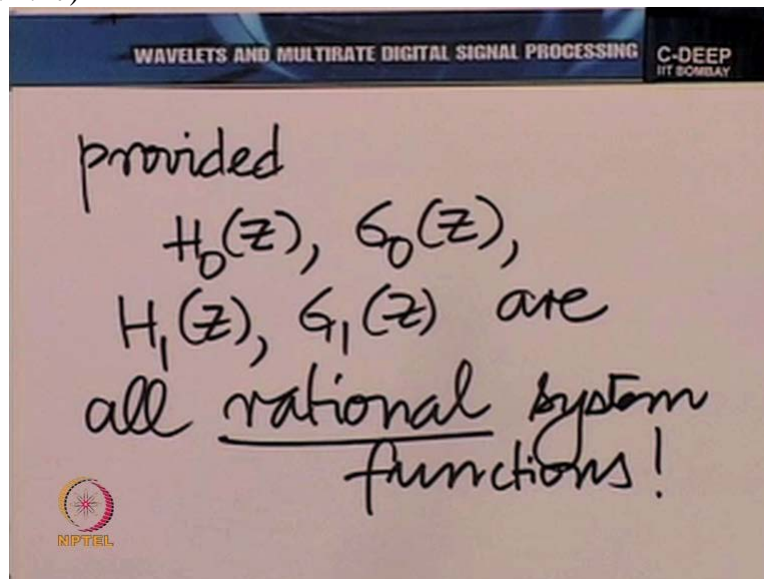 WAVELETS AND MULTIRATE DIGITAL SIGNAL PROCESSING
C-DEEP
IIT BOMBAY
provided
H₀(Z), G₀(Z),
H₁(Z), G₁(Z) are
all rational system
functions!
NPTEL